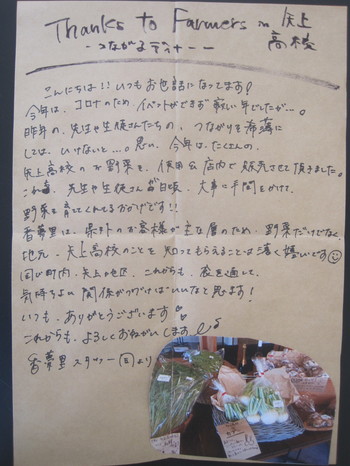 Thanks to Farmers in 矢上高校
- つながるディナー -
こんにちは!! いつもお世話になってます!
今年は、コロナのため イベントができず 寂しい年でしたが…。
昨年の、先生や生徒さんたちの、つながりを希薄に
しては、いけないと…。思い、今年は、たくさんの、
矢上高校のお野菜を、使用&店内で販売させて頂きました。
これも、先生や生徒さんが日頃、大事に手間をかけて、
野菜を育ててくれてるおかげです!!
香夢里は、県外のお客様が主な層のため、野菜だけでなく、
地元、矢上高校のことを知ってもらえることは凄く嬉しいです
同じ町内、矢上地区、これからも、食を通して、
気持ちよい関係がつづけばいいなと思います!
いつも、ありがとうございます
これからも、よろしくおねがいします
香夢里 スタッフ一同より